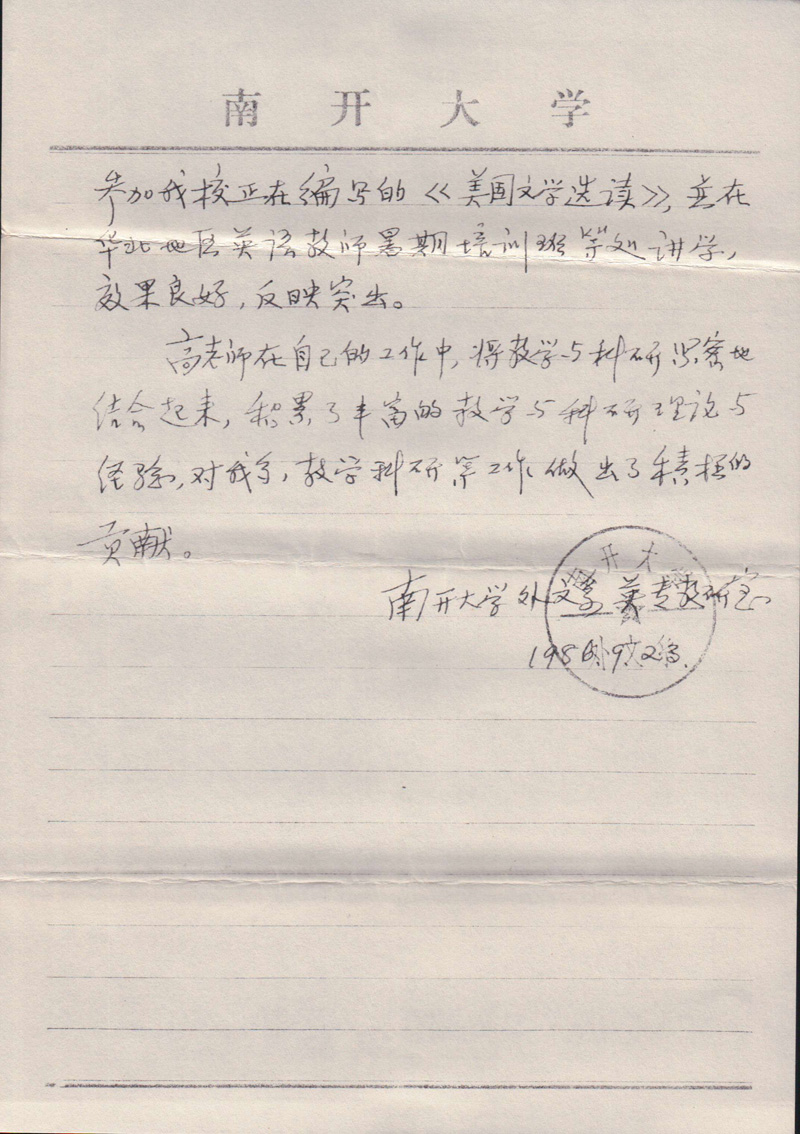 南开大学
参加我校正在编写的《美国文学选读》，并在
华北地区英语教师暑期培训班等处讲学，
效果良好，反映突出。
高老师在自己的工作中，将教学与科研紧密地
结合起来，积累了丰富的教学与科研理论与
经验，对我系，教学科研等工作做出了积极的
贡献。
南开大学外文系英专教研室
198 9